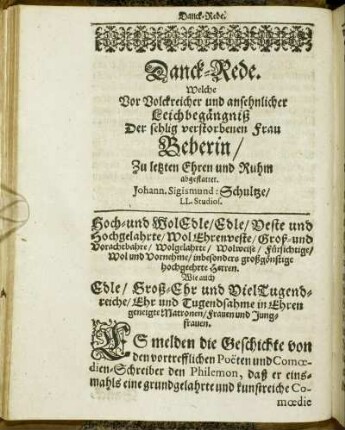 Danck-Rede.
Danck-Rede.
Welche
Vor Volckreicher und ansehnlicher
Leichbegängniß
Der sehlig verstorbenen Frau
Beberin/
Zu letzten Ehren und Ruhm
abgestattet.
Johann. Sigismund: Schultze/
LL. Studios.
Hoch-und WolEdle/Edle/ Veste und
Hochgelahrte/ Wol Ehrenveste/ Groß-und
Vorachtbahre/ Wolgelahrte/ Wolweise/ Fürsichtige/
Wol und Vornehme/ inbesonders großgünstige
hochgeehrte Herren.
Wie auch
Edle/ Groß-Ehr und VielTugend-
reiche/ Ehr und Tugendsahme in Ehren
geneigte Matronen/ Frauen und Jung-
frauen.
ES melden die Geschichte von
den vortrefflichen Poëten und Comœ-
dien-Schreiber den Philemon, daß er eins-
mahls eine grundgelahrte und kunstreiche Co-
mœdie